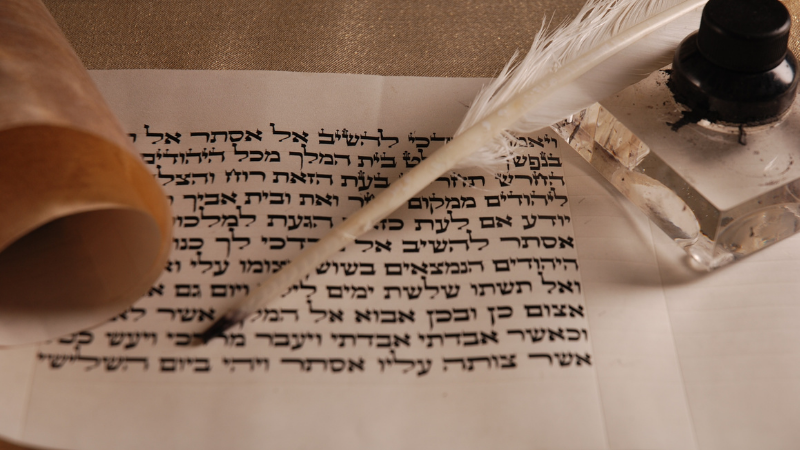 להשיב אל אסתר אל
בנפשך בית המלך מכל היהודים
תחרישי בעת הזאת רוח והצלה
ליהודים ממקום ואת ובית אביך
יודע אם לעת הגעת למלכות
אסתר להשיב אל מרדכי לך כנוס
היהודים הנמצאים בשושן וצומו עלי
ואל תשתו שלשת ימים ויום גם
אצום כן ובכן אבוא אל המלך אשר
וכאשר אבדתי אבדתי ויעבר מרדכי ויעש ככל
אשר צותה עליו אסתר ויהי ביום השלישי